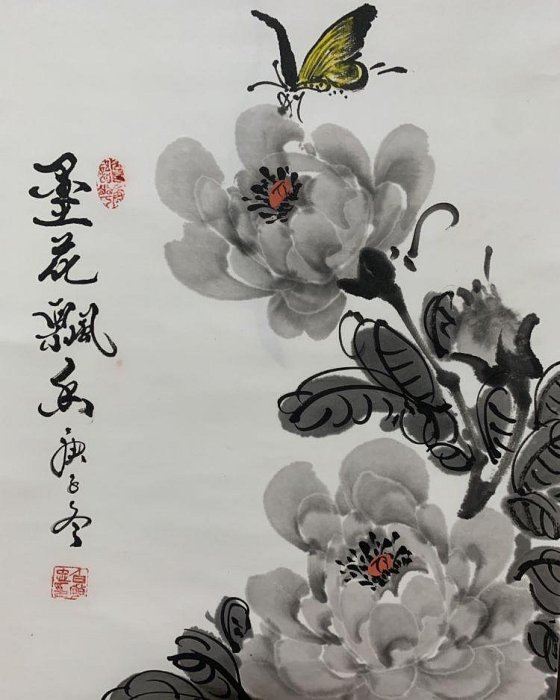 墨花飄香
庚子冬